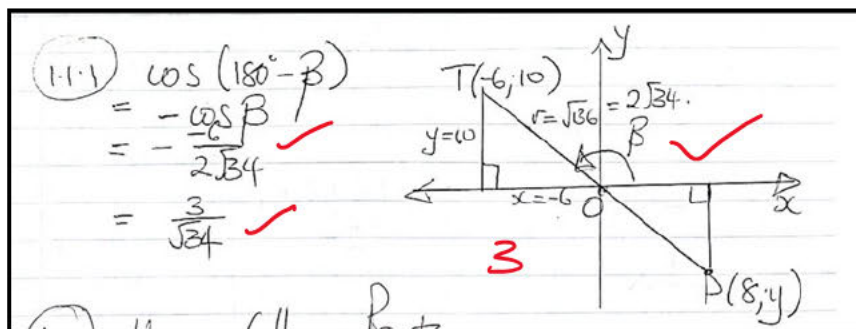 1.1.1 cos (180° - β)
= - cos β
= - -6/2√34
= 3/√34
y
T(-6;10)
r = √136 = 2√34.
y = 10
β
x = -6
O
x
3
P(8;y)